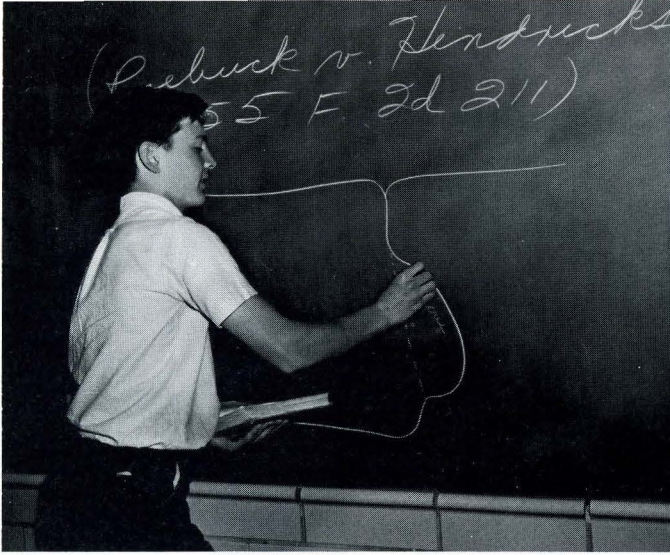 (Roebuck v. Hendricks
55 F. 2d 211)